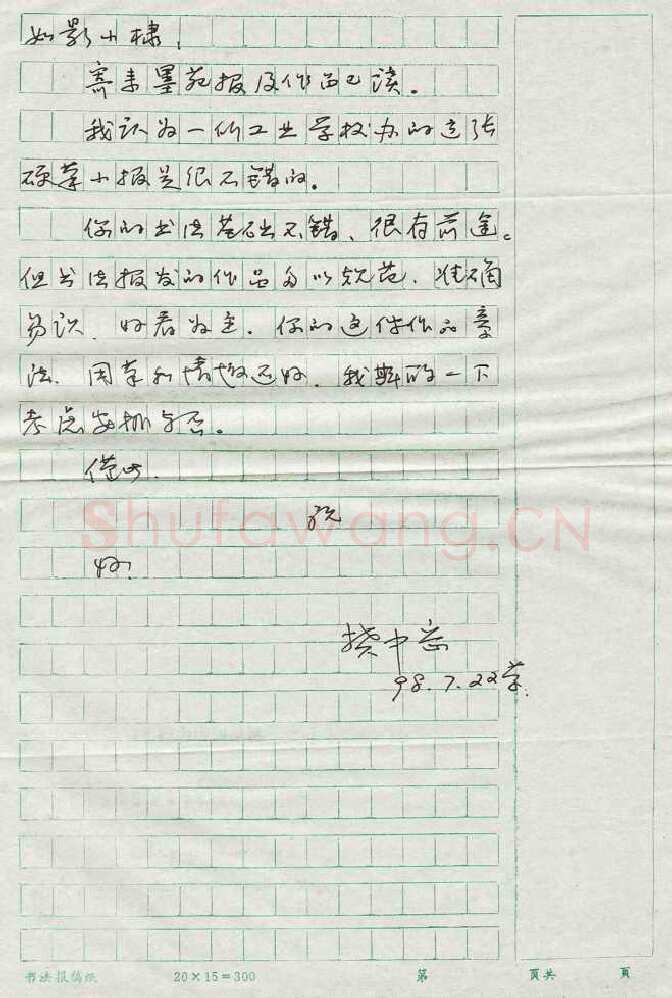 如影小棣：
寄来墨苑报及作品已读。
我认为一所工业学校办的这张
硬笔小报是很不错的。
你的书法基础不错、很有前途。
但书法报发的作品多以规范、准确
易识、好看为主. 你的这件作品章
法、用笔和情趣还好. 我斟酌一下
考虑安排与否。
借此.
祝
好!
中
98.7.22
Shufawang.CN
书法报稿纸 20×15=300 第 页共 页